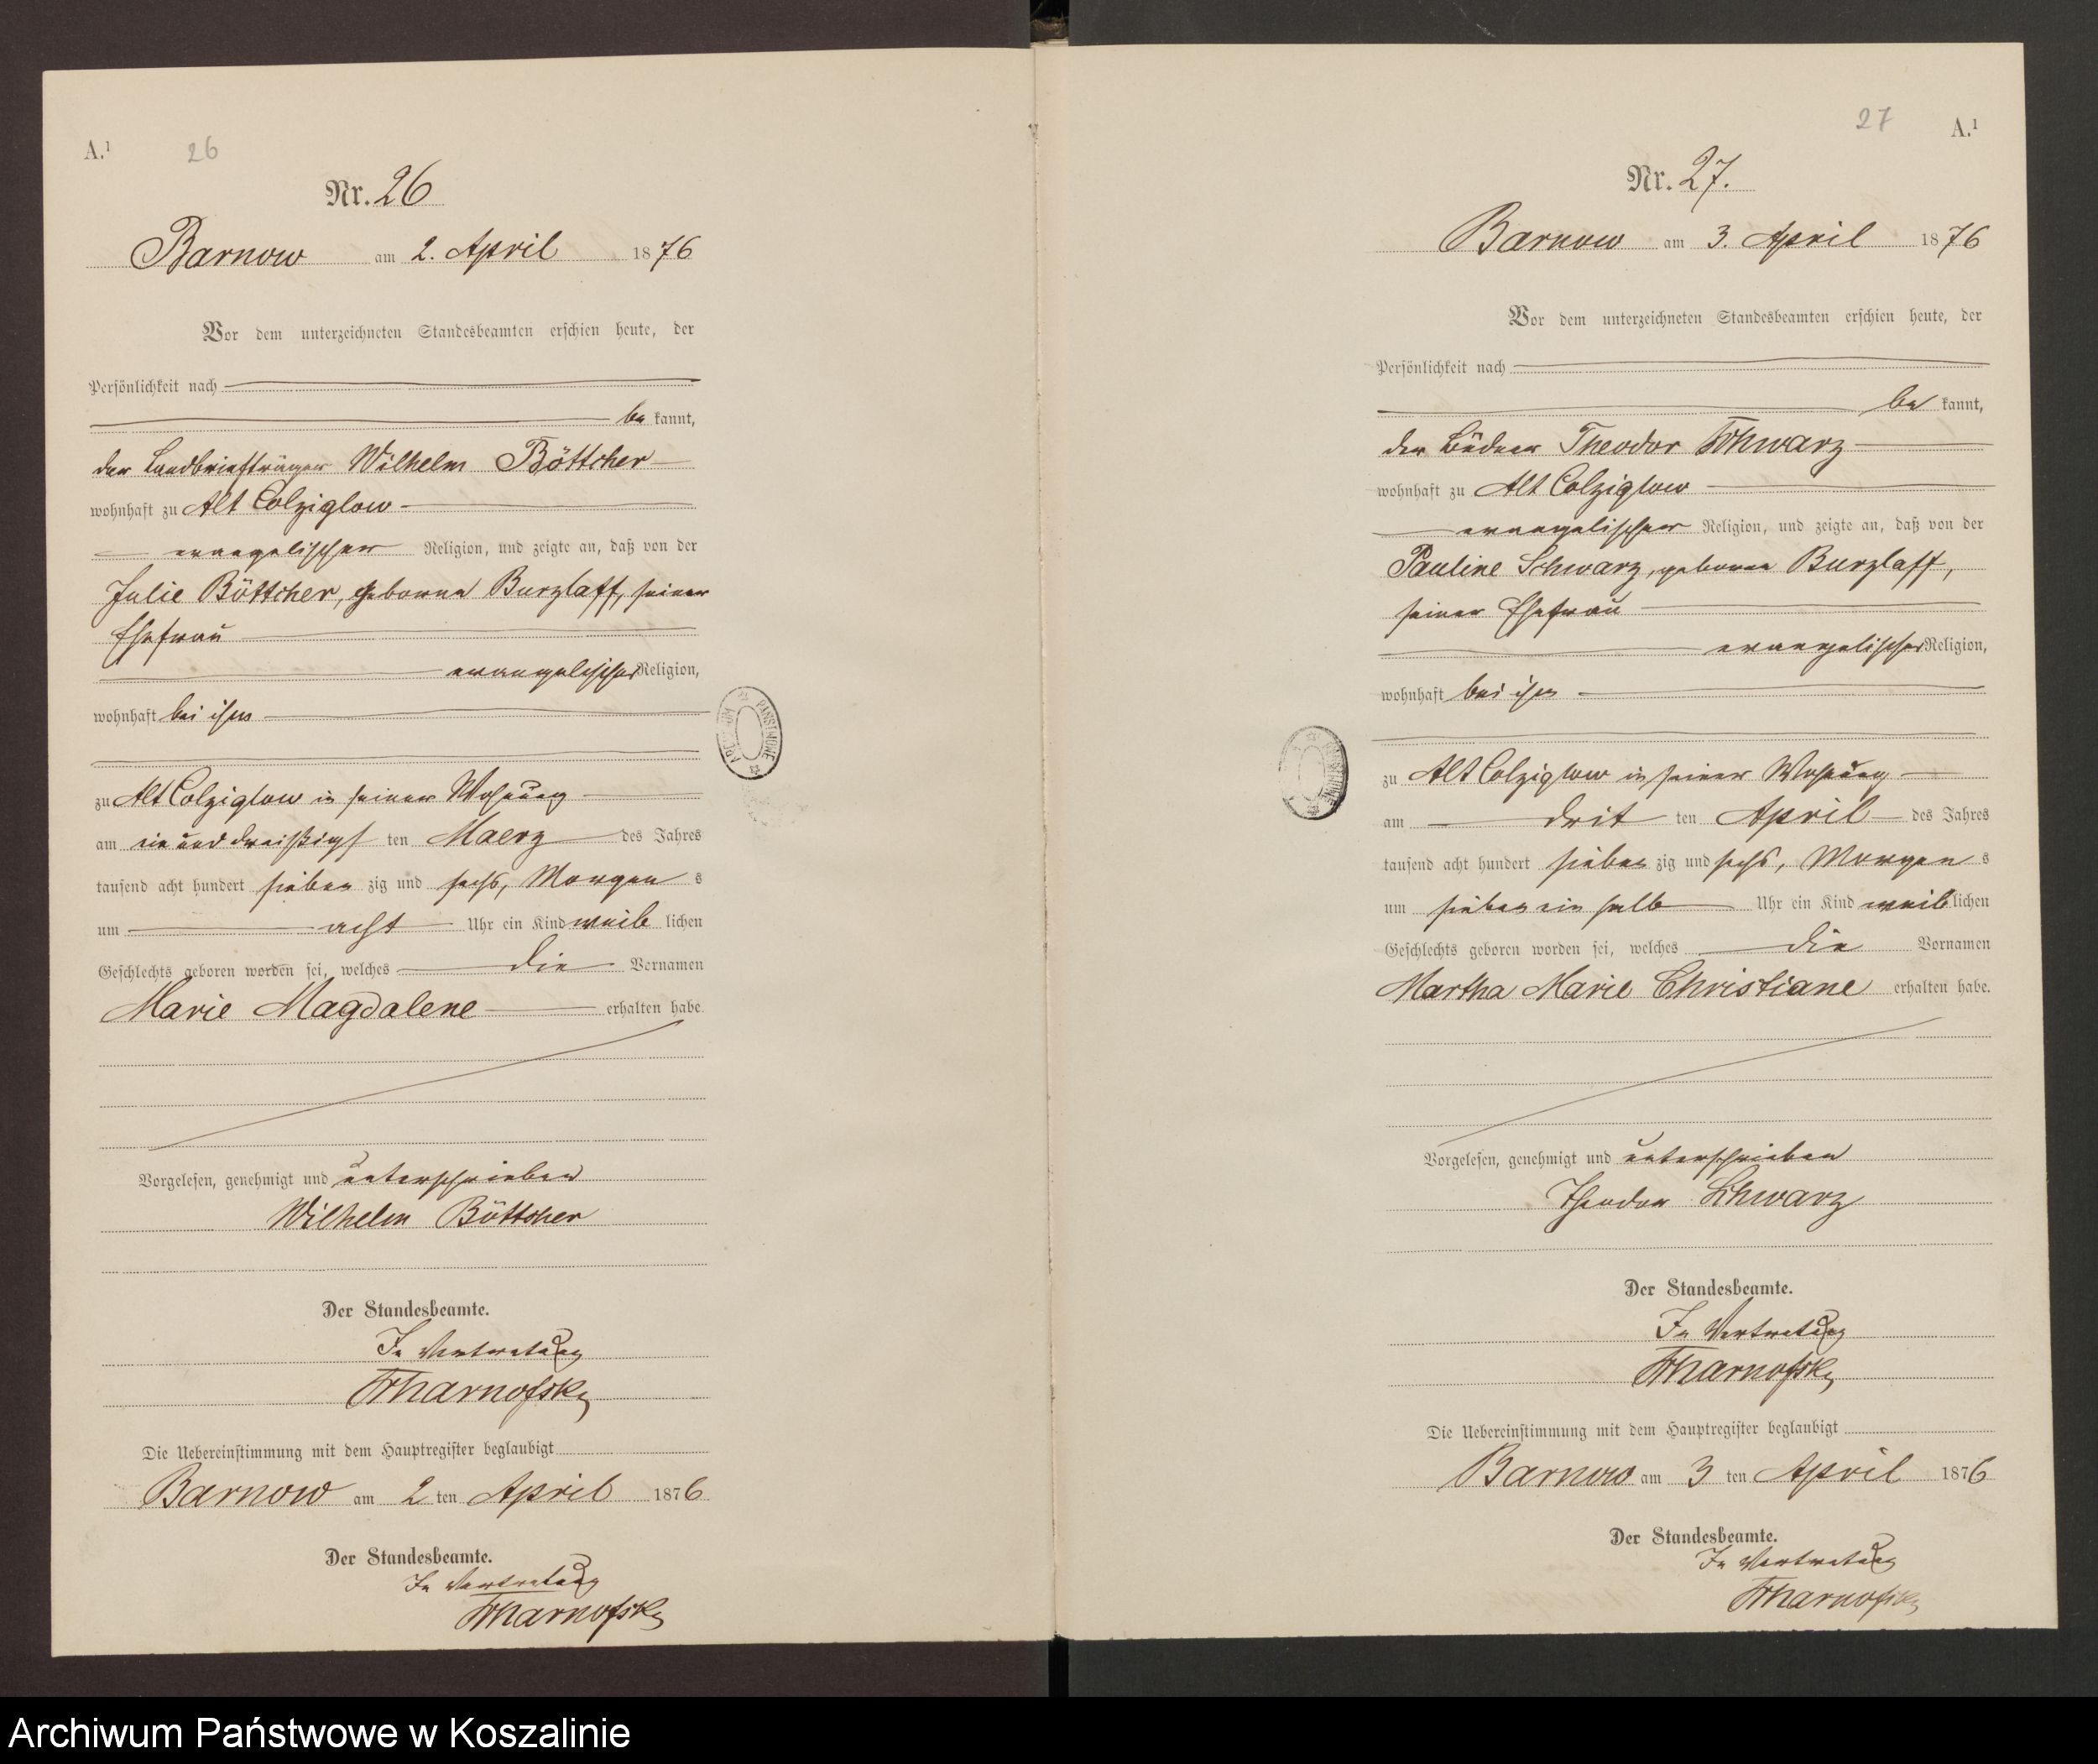 A.¹ 26
Nr. 26
Barnow am 2. April 1876
Vor dem unterzeichneten Standesbeamten erschien heute, der
Persönlichkeit nach
be kannt,
der Landbriefträger Wilhelm Böttcher
wohnhaft zu Alt Colziglow
evangelischer Religion, und zeigte an, daß von der
Julie Böttcher, geborne Burzlaff, seiner
Ehefrau
evangelischer Religion,
wohnhaft bei ihm
zu Alt Colziglow in seiner Wohnung
am ein und dreißigst ten Maerz des Jahres
tausend acht hundert sieben zig und sechs, Morgen s
um acht Uhr ein Kind weib lichen
Geschlechts geboren worden sei, welches die Vornamen
Marie Magdalene erhalten habe.
Vorgelesen, genehmigt und unterschrieben
Wilhelm Böttcher
Der Standesbeamte.
In Vertretung
Scharnofsky
Die Uebereinstimmung mit dem Hauptregister beglaubigt
Barnow am 2 ten April 1876.
Der Standesbeamte.
In Vertretung
Scharnofsky
27 A.¹
Nr. 27.
Barnow am 3. April 1876
Vor dem unterzeichneten Standesbeamten erschien heute, der
Persönlichkeit nach
be kannt,
der Büdner Theodor Schwarz
wohnhaft zu Alt Colziglow
evangelischer Religion, und zeigte an, daß von der
Pauline Schwarz, geborne Burzlaff,
seiner Ehefrau
evangelischer Religion,
wohnhaft bei ihm
zu Alt Colziglow in seiner Wohnung
am drit ten April des Jahres
tausend acht hundert sieben zig und sechs, Morgen s
um sieben ein halb Uhr ein Kind weib lichen
Geschlechts geboren worden sei, welches die Vornamen
Martha Marie Christiane erhalten habe.
Vorgelesen, genehmigt und unterschrieben
Theodor Schwarz
Der Standesbeamte.
In Vertretung
Scharnofsky
Die Uebereinstimmung mit dem Hauptregister beglaubigt
Barnow am 3 ten April 1876
Der Standesbeamte.
In Vertretung
Scharnofsky
Archiwum Państwowe w Koszalinie